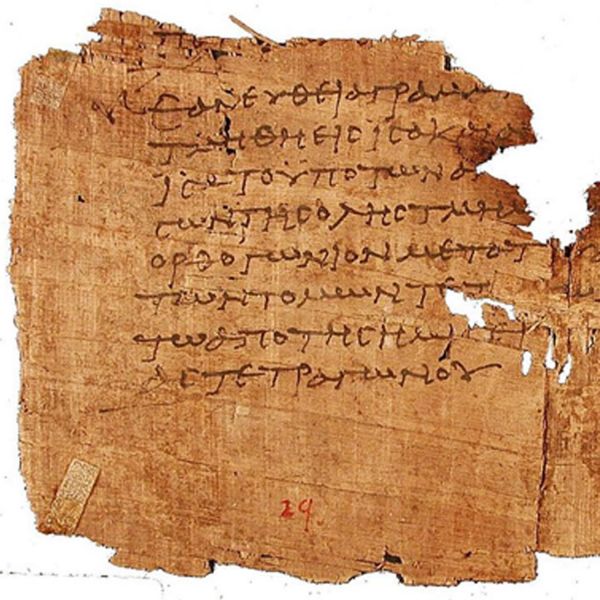 ΕΑΝ ΕΥΘΕΙΑ ΓΡΑΜΜ
ΤΜΗΘΗ ΕΙϹ ΙϹΑ ΚΑΙ Α
ΙϹΑ ΤΟ ΥΠΟ ΤΩΝ Α
ϹΩΝ ΤΗϹ ΟΛΗϹ ΤΜΗΜ
ΟΡΘΟΓΩΝΙΟΝ ΜΕΤΑ Τ
ΤΩΝ ΤΟΜΩΝ ΤΕΤ
ΤΩ ΑΠΟ ΤΗϹ ΗΜΙ
ΑϹ ΤΕΤΡΑΓΩΝΟΥ
29.